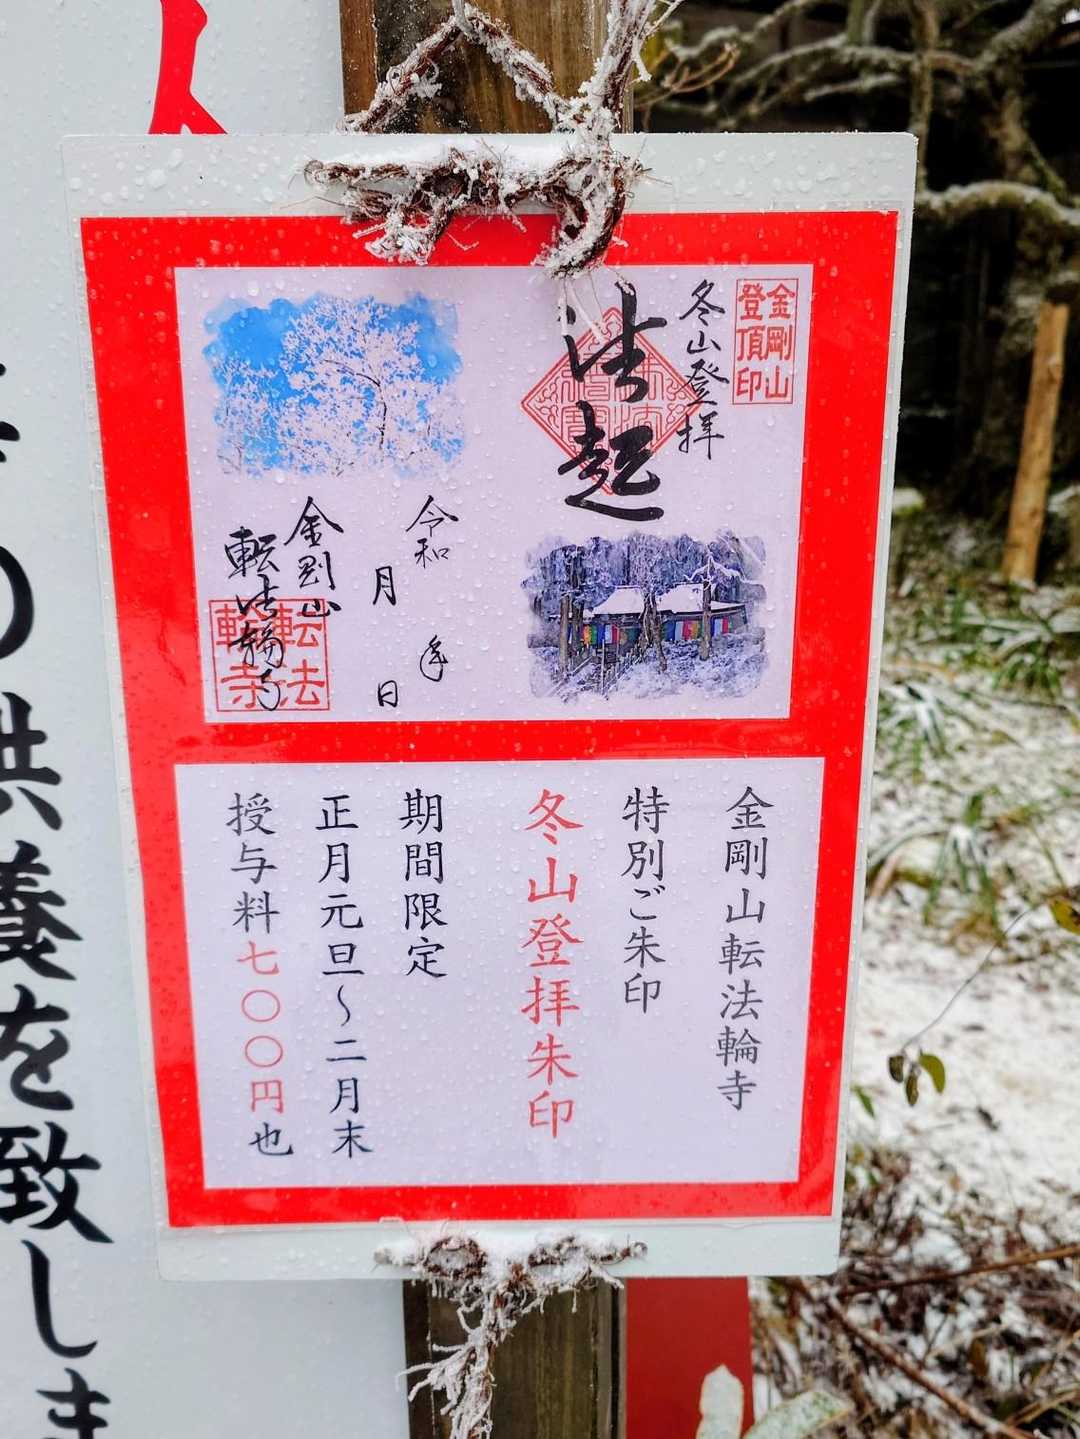 金剛山
登頂印
冬山登拝
法起
令和　年
月　日
金剛山
転法輪寺
転法
輪寺
金剛山転法輪寺
特別ご朱印
冬山登拝朱印
期間限定
正月元旦～二月末
授与料七〇〇円也
の供養を致しま